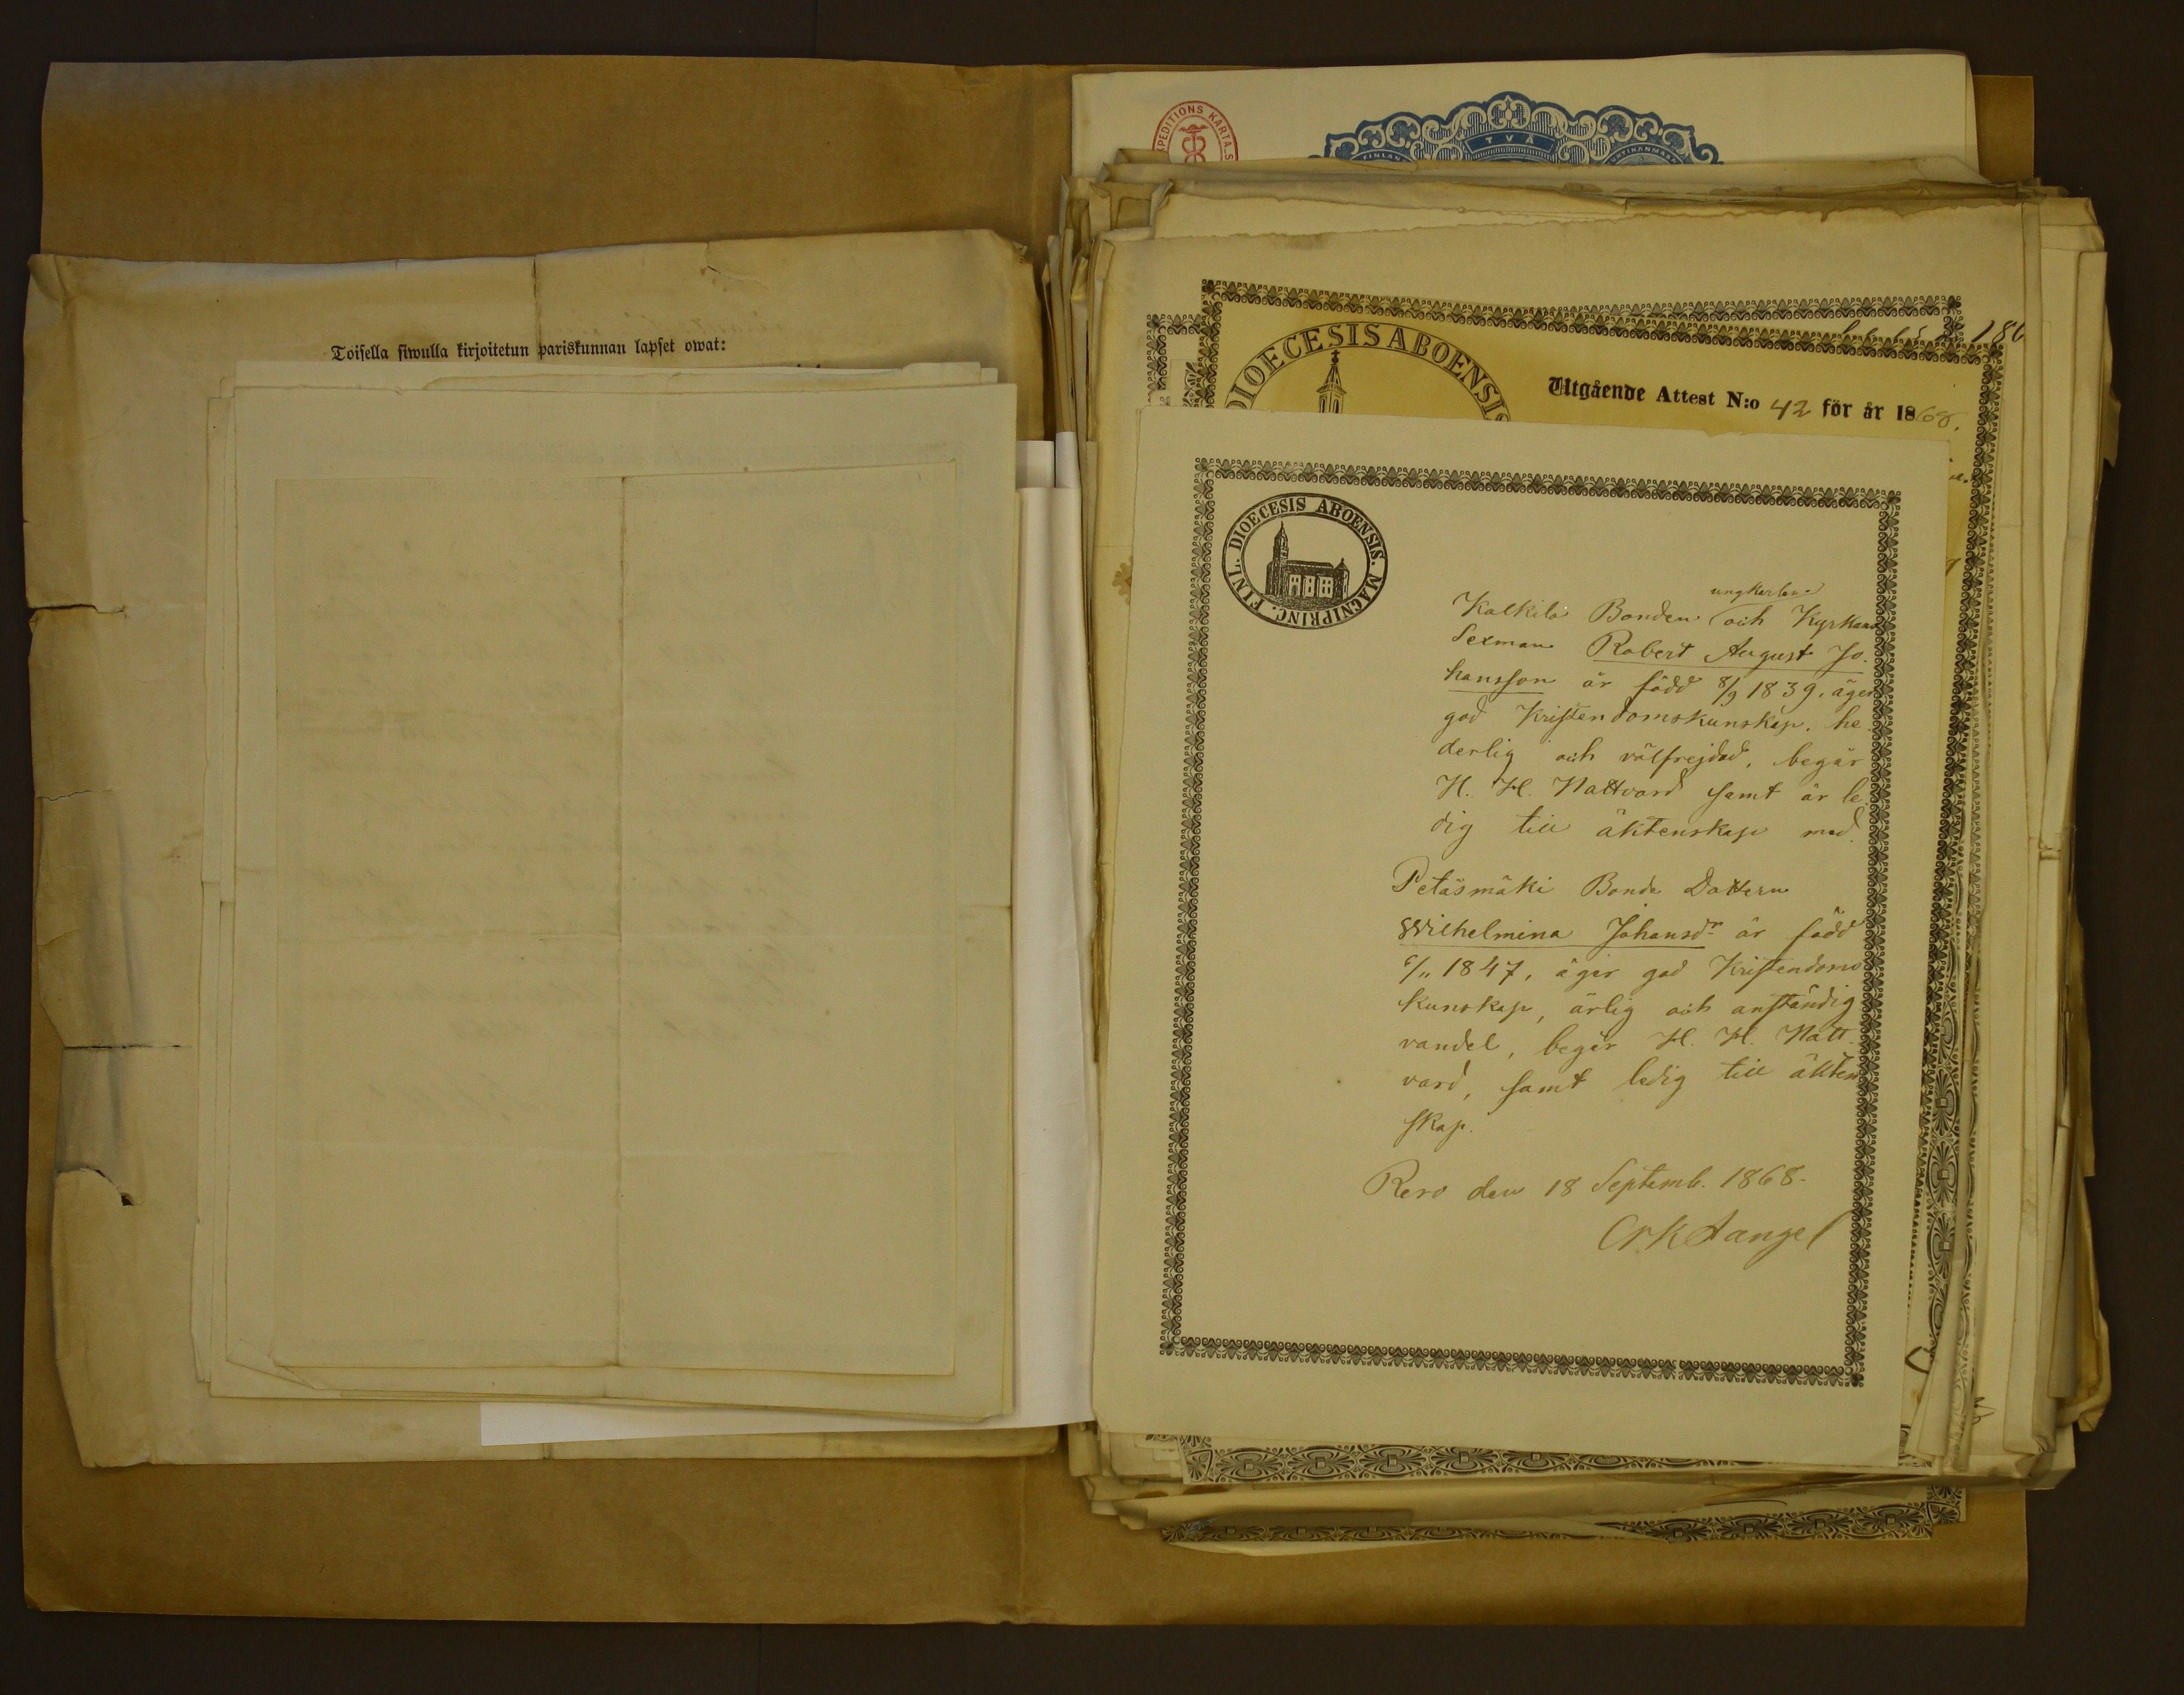 Toisella siwulla kirjoitetun pariskunnan lapset owat:
EXPEDITIONS KARTA.S
TVÅ
FINLAN
186
DIOECESIS ABOENSIS
Utgående Attest N:o 42 för år 1868.
FINL. DIOECESIS ABOENSIS. MAGNIPRINC.
ungkarlen
Kalkila Bonden och Kyrkans
Sexman Robert August Jo-
hansson är född 8/9 1839, äger
god Kristendomskunskap, he-
derlig och välfrejdad, begår
H. H. Nattvard samt är le-
dig till äktenskap med
Petäsmäki Bonde Dottern
Wilhelmina Johansdr är född
6/11 1847, äger god Kristendoms
kunskap, ärlig och anständig
vandel, begår H. H. Natt-
vard, samt ledig till äkten
skap.
Reso den 18 Septemb. 1868.